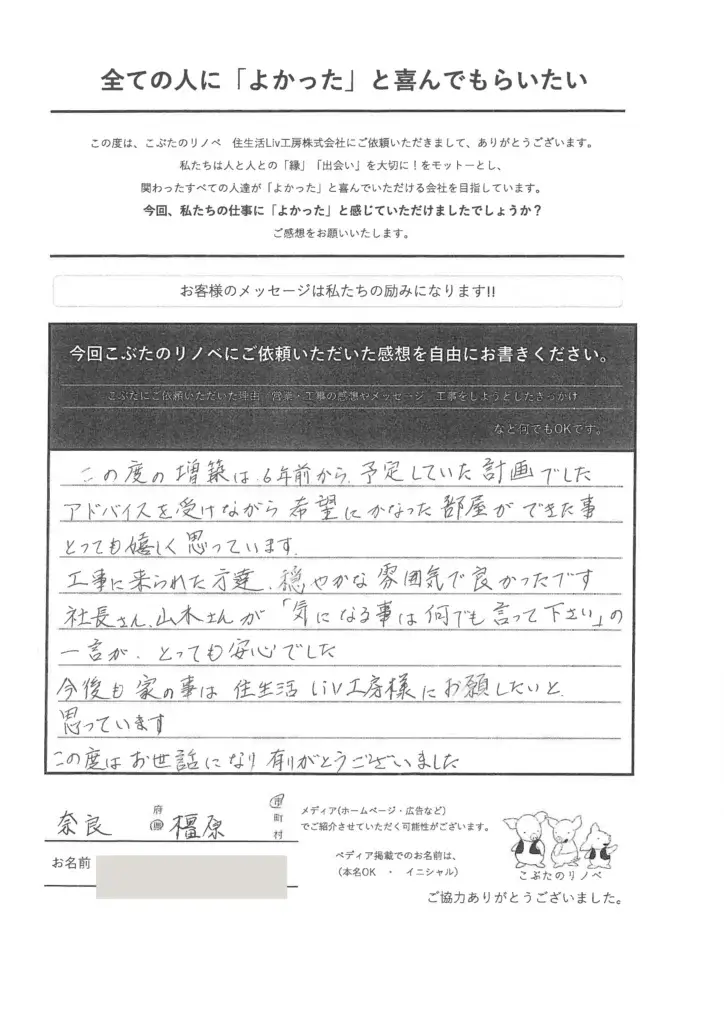 全ての人に「よかった」と喜んでもらいたい
この度は、こぶたのリノベ　住生活Liv工房株式会社にご依頼いただきまして、ありがとうございます。
私たちは人と人との「縁」「出会い」を大切に！をモットーとし、
関わったすべての人達が「よかった」と喜んでいただける会社を目指しています。
今回、私たちの仕事に「よかった」と感じていただけましたでしょうか？
ご感想をお願いいたします。
お客様のメッセージは私たちの励みになります!!
今回こぶたのリノベにご依頼いただいた感想を自由にお書きください。
こぶたにご依頼いただいた理由　営業・工事の感想やメッセージ　工事をしようとしたきっかけ
など何でもOKです。
この度の増築は、6年前から、予定していた計画でした
アドバイスを受けながら希望にかなった部屋ができた事
とっても嬉しく思っています。
工事に来られた方達、穏やかな雰囲気で良かったです
社長さん、山本さんが「気になる事は何でも言って下さい」の
一言が、とっても安心でした
今後も家の事は住生活Liv工房様にお願したいと、
思っています
この度はお世話になり有りがとうございました
奈良 府県 橿原 市町村
メディア(ホームページ・広告など)
でご紹介させていただく可能性がございます。
お名前
ペディア掲載でのお名前は、
（本名OK　・　イニシャル）
こぶたのリノベ
ご協力ありがとうございました。